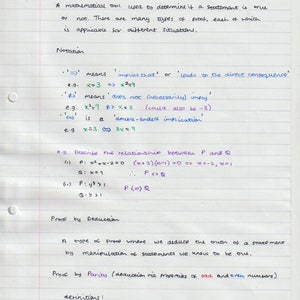 A mathematical tool used to determine if a statement is true
or not. There are many types of proof, each of which
is applicable for different situations.
Notation
'⇒' means 'implies that' or 'leads to the direct consequence'
e.g. x=3 ⇒ x²=9
'⇏' means 'does not (necessarily) imply'
e.g. x²=9 ⇏ x=3 (could also be -3)
'⇔' is a 'double-ended implication'
e.g. x=3 ⇔ 3x=9
e.g. Describe the relationship between P and Q
(i) P: x²+x-2=0 (x+2)(x-1)=0 ⇒ x=-2, x=1
Q: x=1 ∴ P⇐Q
(ii) P: y³>1 P⇔Q
Q: y>1
Proof by Deduction
A type of proof where we deduce the truth of a statement
by manipulation of statements we know to be true.
Proof by Parity (deduction via properties of odd and even numbers)
definitions: